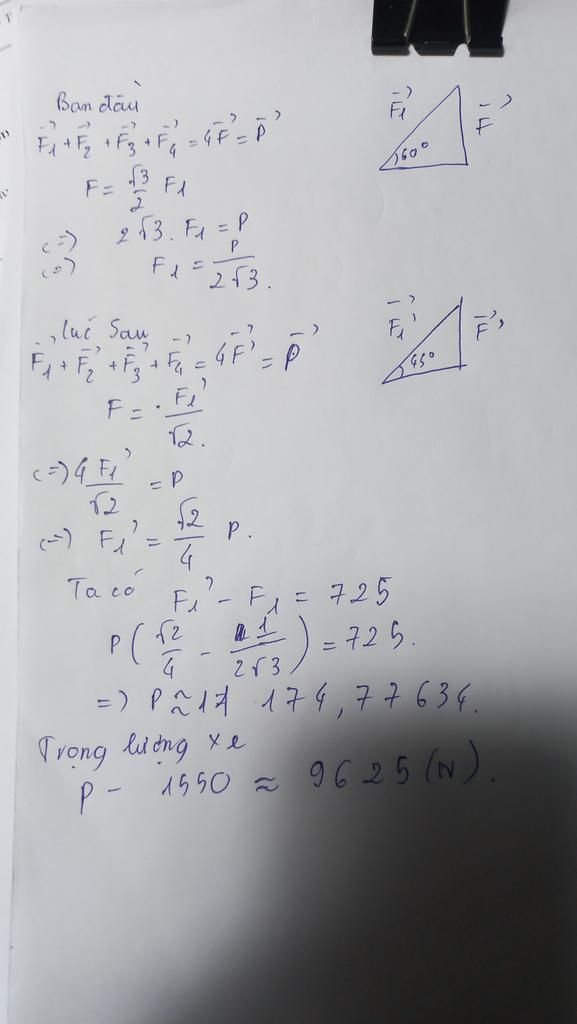 Ban đầu
F₁⃗ + F₂⃗ + F₃⃗ + F₄⃗ = 4F⃗ = P⃗
F₁⃗
F⃗
60°
F = √3/2 F₁
<=> 2√3. F₁ = P
<=> F₁ = P/2√3.
lúc sau
F₁⃗ + F₂⃗ + F₃⃗ + F₄⃗ = 4F⃗' = P⃗
F₁⃗'
F⃗'
45°
F = F₁'/√2.
<=> 4F₁'/√2 = P
<=> F₁' = √2/4 P.
Ta có F₁' - F₁ = 725
P(√2/4 - 1/2√3) = 725.
=> P ≈ 11 174,77634.
Trọng lượng xe
P - 1550 ≈ 9625 (N).